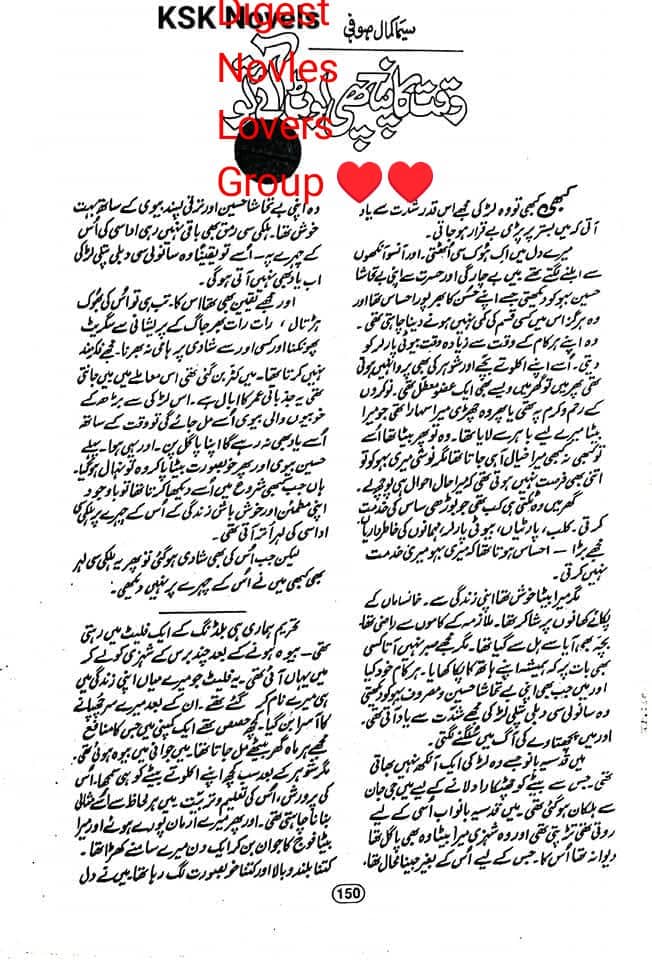 KSK Novels
Digest
Novles
Lovers
Group ❤❤
سیما کمال صوفی
وقت کا پنچھی لوٹا
کبھی کبھی تو وہ لڑکی مجھے اس قدر شدت سے یاد
آتی کہ میں بستر پر پڑی بے قرار ہو جاتی۔
میرے دل میں ایک ہوک سی اٹھتی۔ اور آنسو آنکھوں
سے ابلنے لگتے تھے میں بے چارگی اور حسرت سے اپنی بے تحاشا
حسین بہو کو دیکھتی جسے اپنے حسن کا بھرپور احساس تھا اور
وہ ہرگز اس میں کسی قسم کی کمی نہیں ہونے دینا چاہتی تھی۔
وہ اپنے ہر کام کے وقت سے زیادہ وقت بیوٹی پارلر کو
دیتی۔ اُسے اپنے اکلوتے بچے اور شوہر کی بھی پروا نہیں ہوتی
تھی پھر میں تو گھر میں ویسے بھی ایک عضو معطل تھی۔ نوکروں
کے رحم و کرم پہ تھی یا پھر وہ چھڑی میرا سہارا تھی جو میرا
بیٹا میرے لیے باہر سے لایا تھا۔ وہ تو پھر بیٹا تھا اُسے
تو کبھی نہ کبھی میرا خیال آ ہی جاتا تھا مگر نوشی میری بہو کو تو
اتنی بھی فرصت نہیں ہوتی تھی کہ میرا حال احوال ہی پوچھ لے۔
گھر میں وہ کتنی ہی کب تھی جو بوڑھی ساس کی خدمت
کرتی۔ کلب، پارٹیاں، بیوٹی پارلر، مہمانوں کی خاطر داریاں
مجھے بڑا — احساس ہوتا تھا کہ میری بہو میری خدمت
نہیں کرتی۔
مگر میرا بیٹا خوش تھا اپنی زندگی سے۔ خانساماں کے
پکائے کھانوں پر شاکر تھا۔ ملازمہ کے کاموں سے راضی تھا۔
بچہ بھی آیا سے ہل سے گیا تھا۔ مگر مجھے صبر نہیں آتا کسی
بھی بات پر کہ ہمیشہ اپنے ہاتھ کا پکا کھایا۔ ہر کام خود کیا
اور میں جب بھی اپنی بے تحاشا حسین و مصروف بہو کو دیکھتی
وہ سانولی سی دبلی پتلی لڑکی مجھے شدت سے یاد آتی تھی۔
اور میں پچھتاوے کی آگ میں سلگنے لگتی۔
میں قدسیہ بانو جسے وہ لڑکی ایک آنکھ نہیں بھاتی
تھی۔ جس سے بیٹے کو چھٹکارا دلانے کے لیے میں جی جان
سے ہلکان ہو گئی تھی۔ میں قدسیہ بانو اب اسی کے لیے
روتی تھی تڑپتی تھی اور وہ شہزی میرا بیٹا وہ بھی پاگل تھا
دیوانہ تھا اُس کا۔ جس کے لیے اُس کے بغیر جینا محال تھا۔
وہ اپنی بے تحاشا حسین اور ترقی پسند بیوی کے ساتھ بہت
خوش تھا۔ ہلکی سی رمق بھی باقی نہیں رہی اداسی کی اُس
کے چہرے پر — اُسے تو یقیناً وہ سانولی سی دبلی پتلی لڑکی
اب یاد بھی نہیں آتی ہوگی۔
اور مجھے یقین بھی تھا اس کا۔ تب ہی تو اُس کی بھوک
ہڑتال، رات رات بھر جاگ کے پریشانی سے سگریٹ
پھونکنا اور کسی اور سے شادی پر ہامی نہ بھرنا۔ مجھے فکر مند
نہیں کرتا تھا۔ میں کٹر بن گئی تھی اس معاملے میں میں جانتی
تھی یہ جذباتی عمر کا ابال ہے۔ اس لڑکی سے بڑھ کے
خوبیوں والی بیوی اُسے مل جائے گی تو وقت کے ساتھ
اُسے یاد بھی نہ رہے گا اپنا پاگل پن۔ اور یہی ہوا۔ پہلے
حسین بیوی اور پھر خوبصورت بیٹا پا کر وہ تو نہال ہو گیا۔
ہاں جب کبھی شروع میں اُسے دیکھا کرتا تھا تو باوجود
اپنی مطمئن اور خوش باش زندگی کے اُس کے چہرے پر ہلکی سی
اداسی کی لہر اُتر آتی تھی۔
لیکن جب اُس کی بھی شادی ہو گئی تو پھر یہ ہلکی سی لہر
بھی کبھی میں نے اُس کے چہرے پر نہیں دیکھی۔
تحریم ہماری ہی بلڈنگ کے ایک فلیٹ میں رہتی
تھی — بیوہ ہونے کے بعد چند برس کے شہزی کو لے کر
میں یہاں آئی تھی۔ یہ فلیٹ جو میرے میاں اپنی زندگی میں
ہی میرے نام کر گئے تھے۔ ان کے بعد میرے سر چھپانے
کا آسرا بن گیا۔ کچھ حصص تھے ایک کمپنی میں جس کا منافع
مجھے ہر ماہ گھر بیٹھے مل جاتا تھا میں جوانی میں بیوہ ہوئی تھی
مگر شوہر کے بعد سب کچھ اپنے اکلوتے بیٹے کو ہی سمجھا۔ اُس
کی پرورش، اُس کی تعلیم و تربیت میں ہر لحاظ سے اُسے مثالی
بنانا چاہتی تھی۔ اور پھر میرے ارمان پورے ہوئے اور میرا
بیٹا فوج کا جوان بن کر ایک دن میرے سامنے کھڑا تھا۔
کتنا بلند و بالا اور کتنا خوبصورت لگ رہا تھا۔ میں نے دل
150